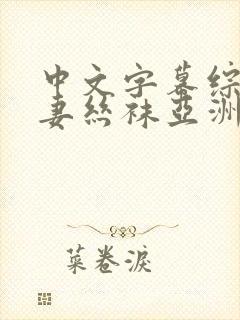 中文字幕综
妻丝袜亚洲
菜卷淚